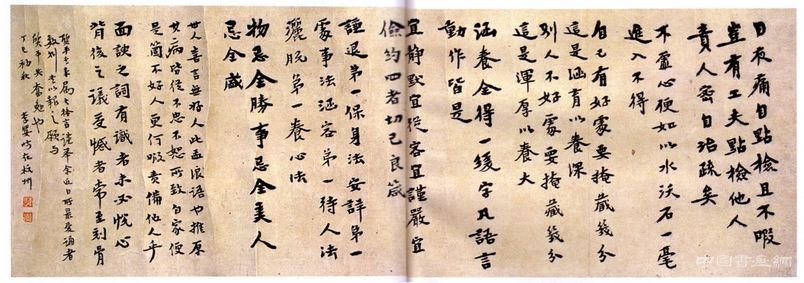 日夜痛自點檢且不暇
豈有工夫點檢他人
責人密自治疏矣
不虛心便如以水沃石一毫
進入不得
自己有好處要掩藏幾分
這是涵育以養深
別人不好處要掩藏幾分
這是渾厚以養大
涵養全得一緩字凡語言
動作皆是
宜靜默宜從容宜謹嚴宜
儉約四者切己良箴
謙退第一保身法安詳第一
處事法涵容第一待人法
灑脫第一養心法
物忌全勝事忌全美人
忌全盛
世人喜言無好人此孟浪語也推原
其病皆從不忠不恕所致自家便
是箇不好人更何暇責備他人乎
面諛之詞有識者未必悅心
背後之議受憾者常至刻骨
質平 屬書格言謹舉余近日所最愛誦者
數則書以報之願與
質平共奮勉也
丁巳初秋 李嬰時在杭州
中國書畫網